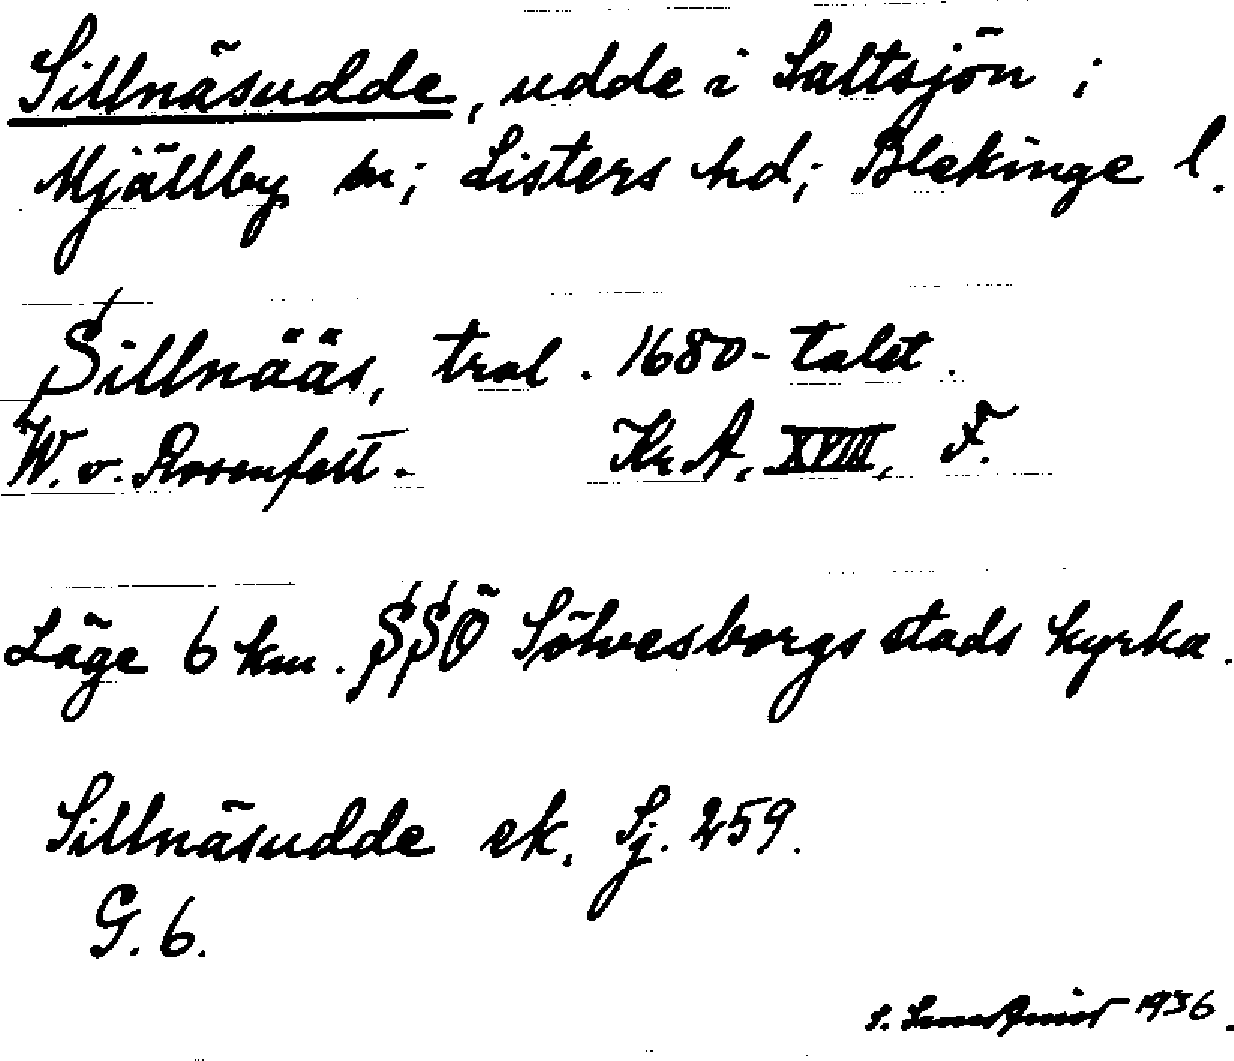 Sillnäsudde, udde i Saltsjön i
Mjällby sn; Listers hd; Blekinge l.
Sillnääs, tral. 1680-talet.
W. v. Rosenfelt. Kr A, XVIII, F.
Läge 6 km. SSÖ Sölvesborgs stads kyrka.
Sillnäsudde ek. Sj. 259.
G. 6.
S. 1936.